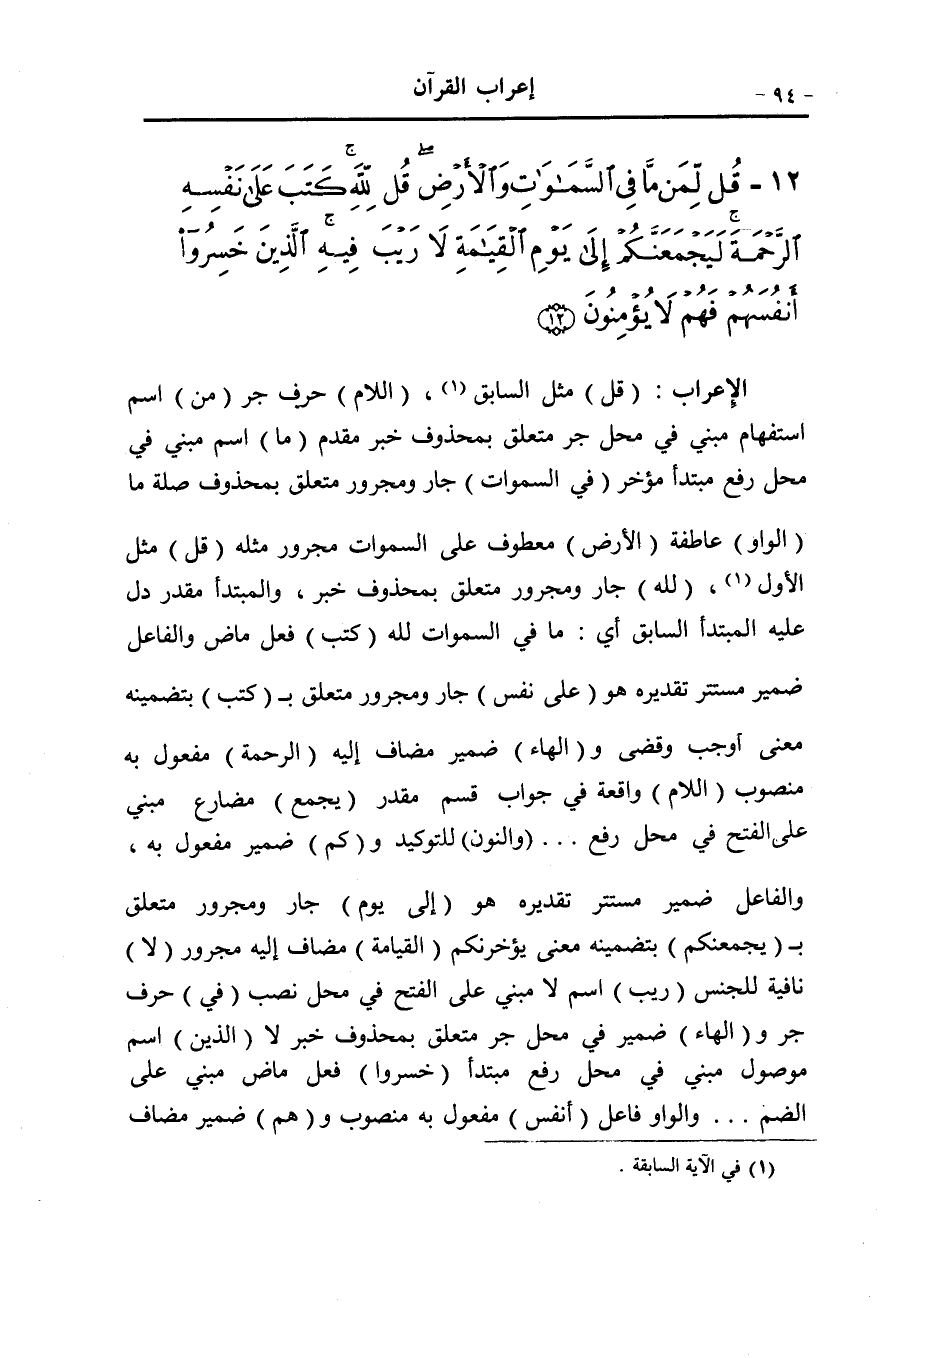 - ٩٤ - إعراب القرآن
١٢ - قُل لِّمَن مَّا فِى ٱلسَّمَـٰوَٰتِ وَٱلْأَرْضِ ۖ قُل لِّلَّهِ ۚ كَتَبَ عَلَىٰ نَفْسِهِ
ٱلرَّحْمَةَ ۚ لَيَجْمَعَنَّكُمْ إِلَىٰ يَوْمِ ٱلْقِيَـٰمَةِ لَا رَيْبَ فِيهِ ۚ ٱلَّذِينَ خَسِرُوٓا۟
أَنفُسَهُمْ فَهُمْ لَا يُؤْمِنُونَ ﴿١٢﴾
الإعراب : ( قل ) مثل السابق (١) ، ( اللام ) حرف جر ( من ) اسم
استفهام مبني في محل جر متعلق بمحذوف خبر مقدم ( ما ) اسم مبني في
محل رفع مبتدأ مؤخر ( في السموات ) جار ومجرور متعلق بمحذوف صلة ما
( الواو ) عاطفة ( الأرض ) معطوف على السموات مجرور مثله ( قل ) مثل
الأول (١) ، ( لله ) جار ومجرور متعلق بمحذوف خبر ، والمبتدأ مقدر دل
عليه المبتدأ السابق أي : ما في السموات لله ( كتب ) فعل ماض والفاعل
ضمير مستتر تقديره هو ( على نفس ) جار ومجرور متعلق بـ ( كتب ) بتضمينه
معنى أوجب وقضى و ( الهاء ) ضمير مضاف إليه ( الرحمة ) مفعول به
منصوب ( اللام ) واقعة في جواب قسم مقدر ( يجمع ) مضارع مبني
على الفتح في محل رفع ... (والنون) للتوكيد و ( كم ) ضمير مفعول به ،
والفاعل ضمير مستتر تقديره هو ( إلى يوم ) جار ومجرور متعلق
بـ ( يجمعنكم ) بتضمينه معنى يؤخرنكم ( القيامة ) مضاف إليه مجرور ( لا )
نافية للجنس ( ريب ) اسم لا مبني على الفتح في محل نصب ( في ) حرف
جر و ( الهاء ) ضمير في محل جر متعلق بمحذوف خبر لا ( الذين ) اسم
موصول مبني في محل رفع مبتدأ ( خسروا ) فعل ماض مبني على
الضم ... والواو فاعل ( أنفس ) مفعول به منصوب و ( هم ) ضمير مضاف
(١) في الآية السابقة .